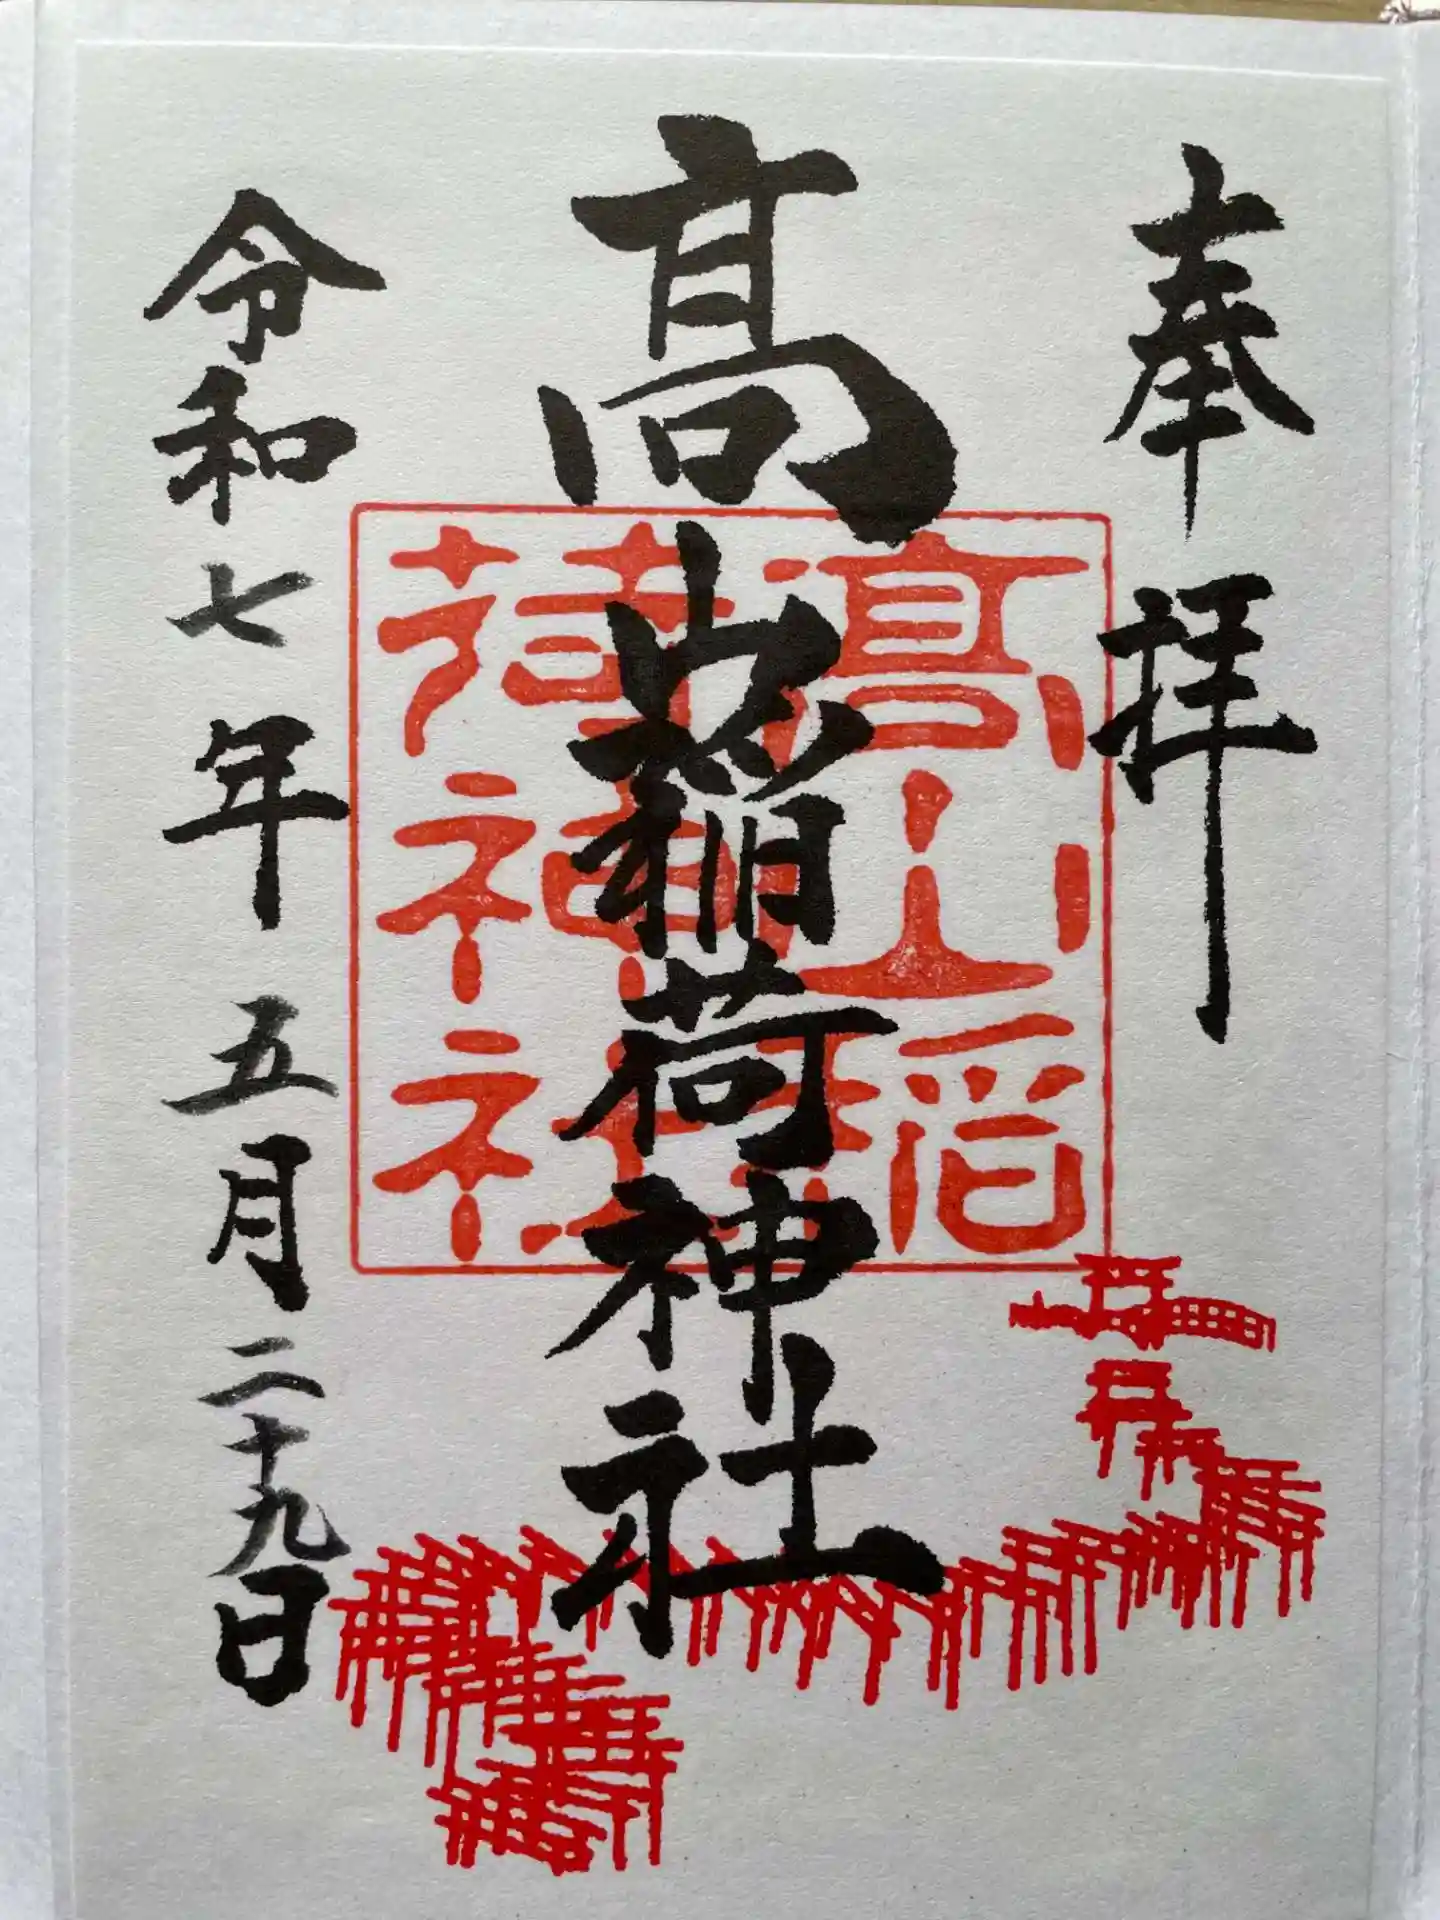 奉拝
髙山稲荷神社
令和七年五月二十九日
高山稲
荷神社